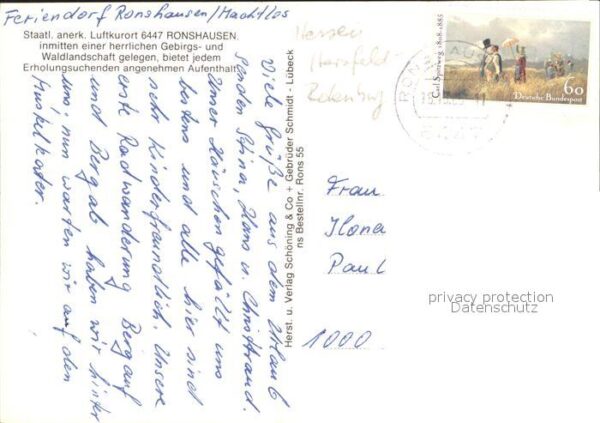 Feriendorf Ronshausen/Machtlos
Staatl. anerk. Luftkurort 6447 RONSHAUSEN,
inmitten einer herrlichen Gebirgs- und
Waldlandschaft gelegen, bietet jedem
Erholungsuchenden angenehmen Aufenthalt
Hessen
Hersfeld
Rotenburg
Viele Grüße aus dem Urlaub
senden Stina, Hans u. Christraud.
Unser Häuschen gefällt uns
bestens und alle hier sind
sehr kinderfreundlich. Unsere
erste Radwanderung Bergauf
und Bergab haben wir hinter
uns; nun warten wir auf den
Muskelkater.
Herst. u. Verlag Schöning & Co + Gebrüder Schmidt - Lübeck
ns Bestellnr. Rons 55
Carl Spitzweg 1808-1885
60
Deutsche Bundespost
RONSHAUSEN
6447
Frau
Ilona
Paul
1000
privacy protection
Datenschutz